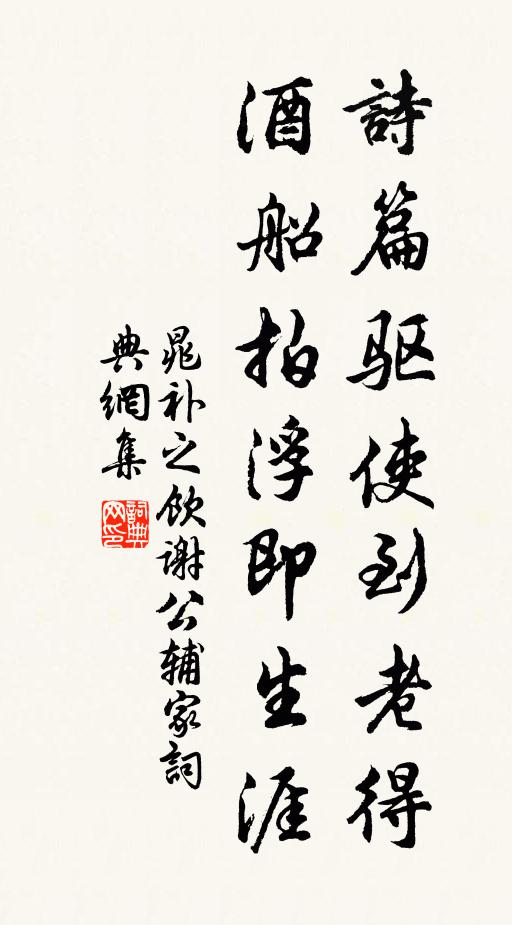 詩篇驱使到老得
酒船拍浮即生涯
晁补之飲谢公辅家詞
典網集
詞典網印